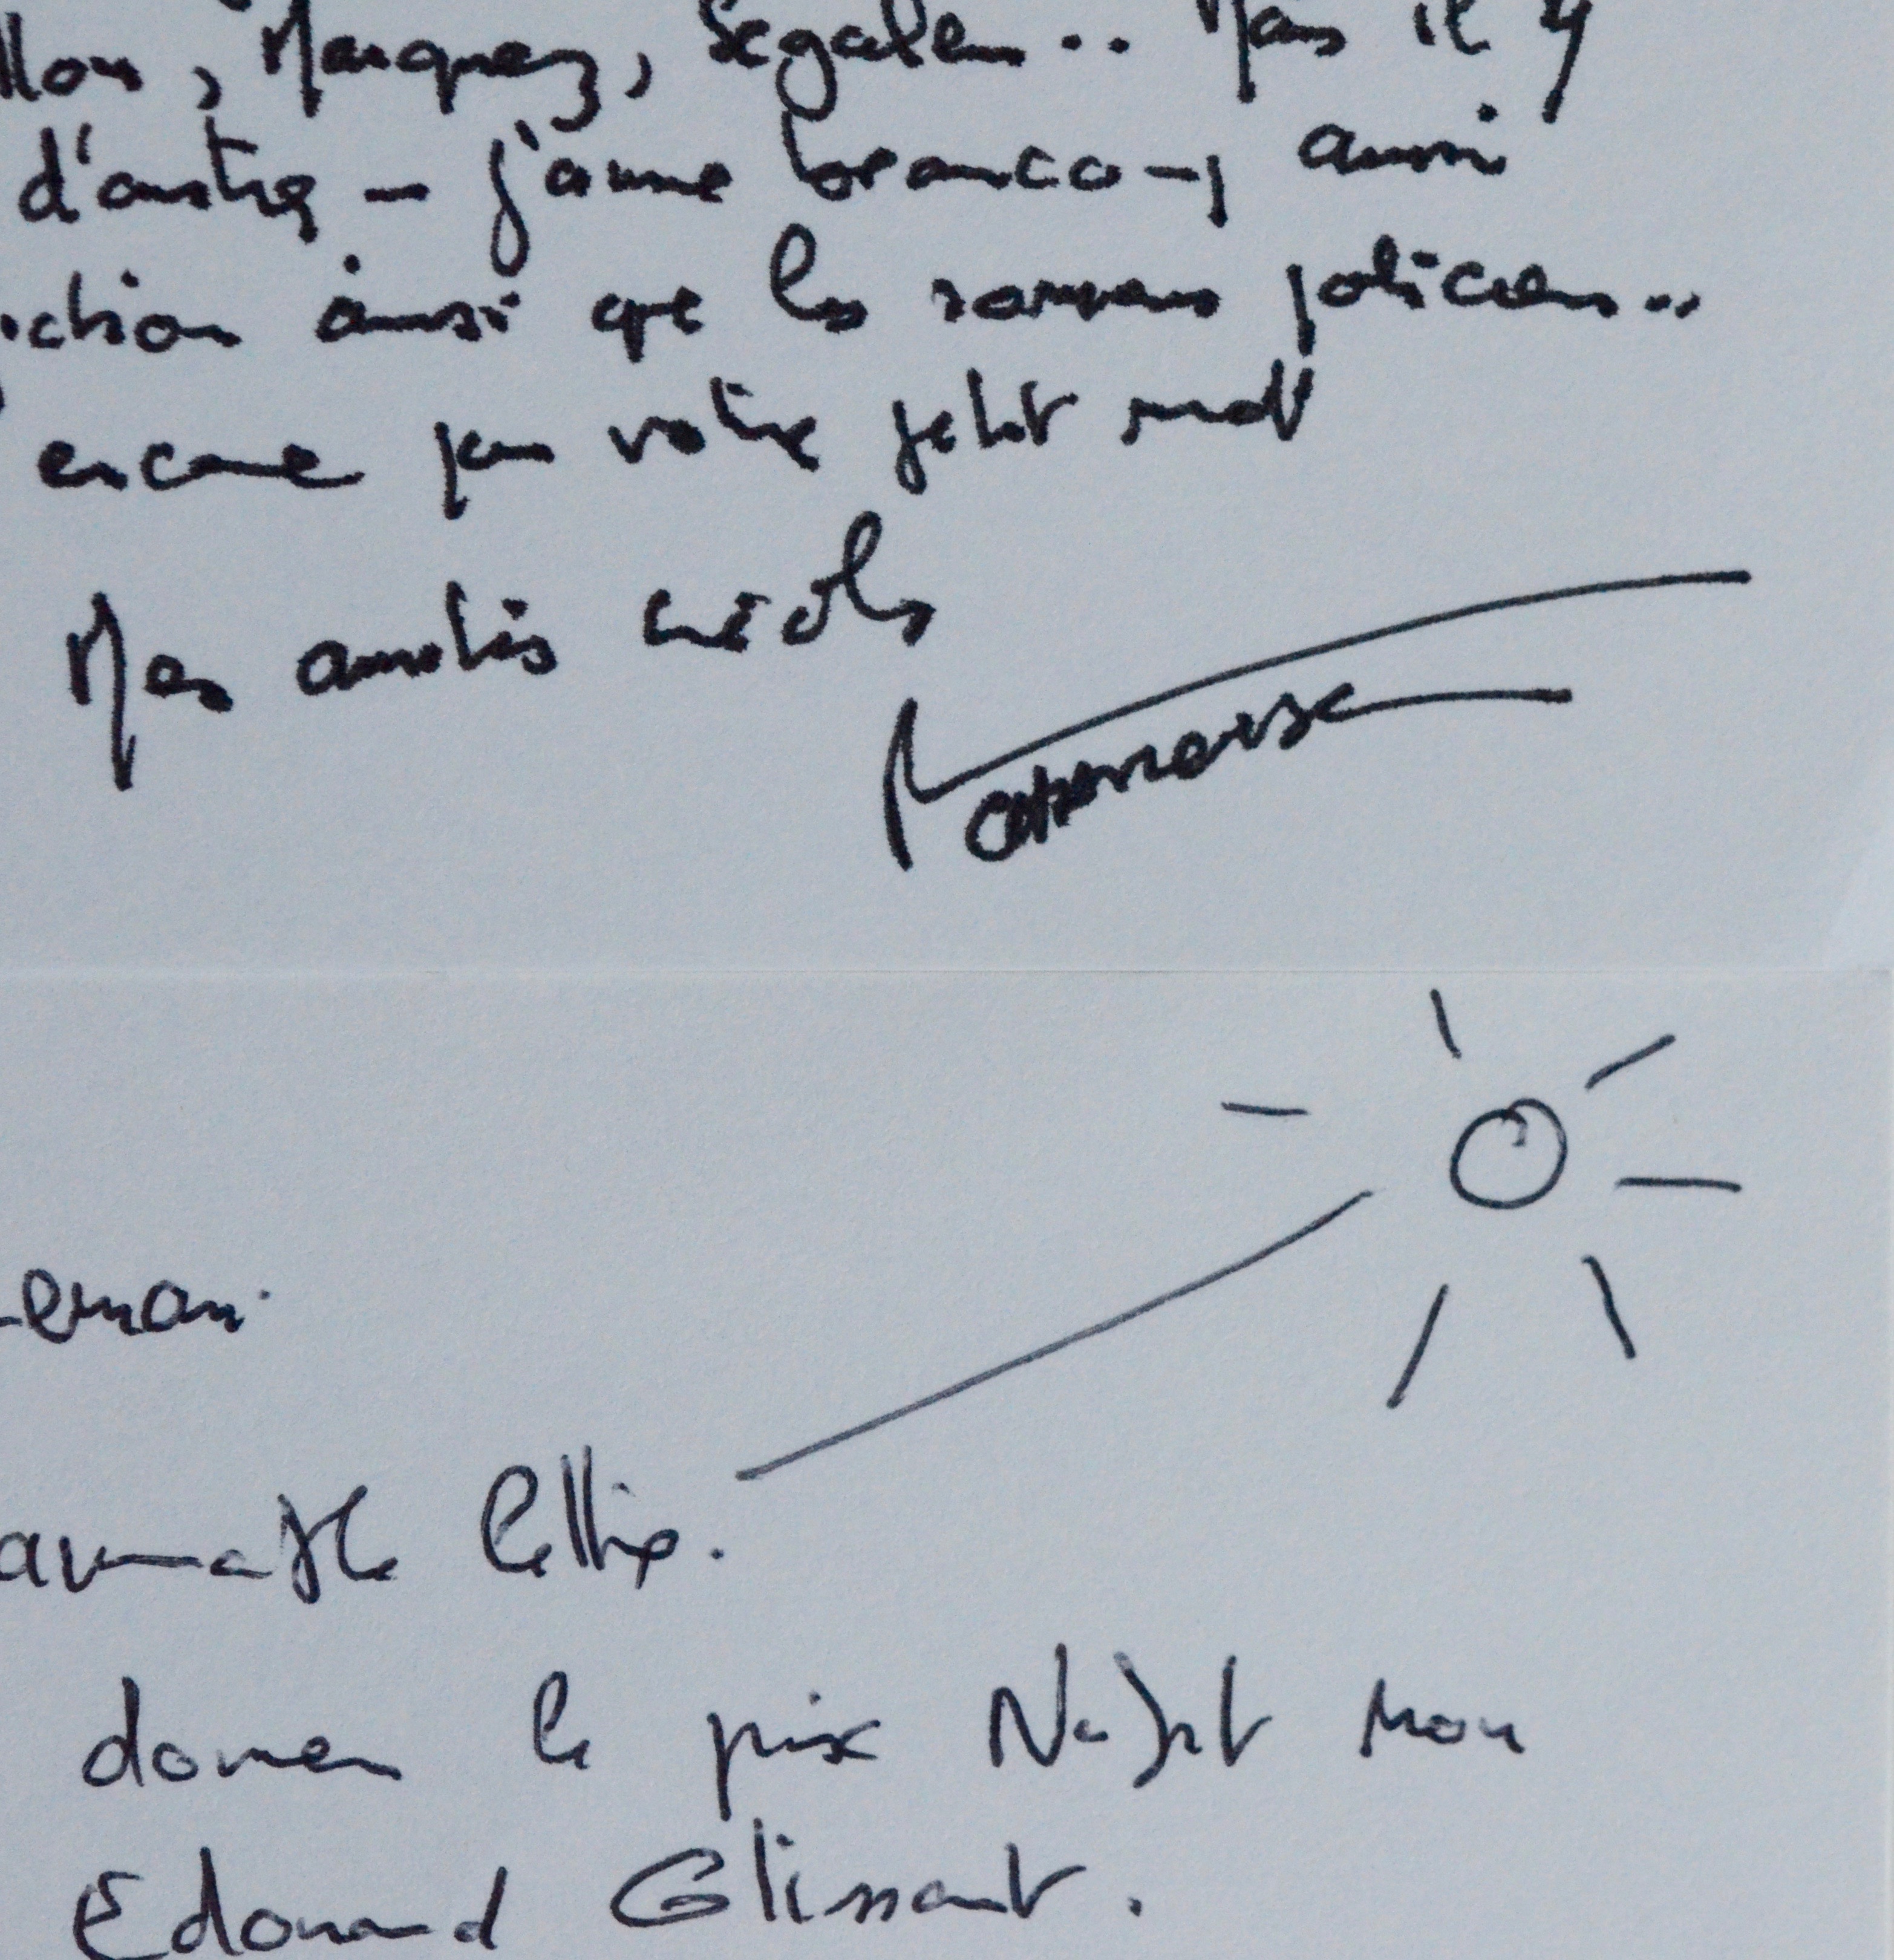 llon, Marquez, Segalen.. Mais il y
d'autres - j'aime beaucoup aussi
iction ainsi que les romans policiers..
encore pour votre petit mot
Mes amitiés créoles
Chamoiseau
Leman.
aimable lettre.
donner le prix Nobel mon
Edouard Glissant.